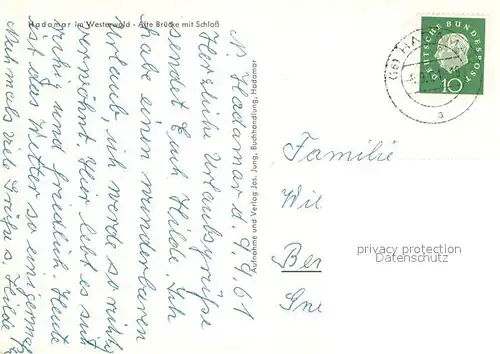 Hadamar im Westerwald - Alte Brücke mit Schloß
N. Hadamar d. 9.9.61
Herzliche Urlaubsgrüße
sendet Euch Hilde. Ich
habe einen wunderbaren
Urlaub, ich werde so richtig
verwöhnt. Hier lebt es sich
ruhig und friedlich. Heute
ist das Wetter so einigerm
Nochmals viele Grüße s. Hilde
Aufnahme und Verlag Jos. Jung, Buchhandlung, Hadamar
DEUTSCHE BUNDESPOST
10
(16) HADAMAR
a
Familie
Wil
Ber
Gne
privacy protection
Datenschutz